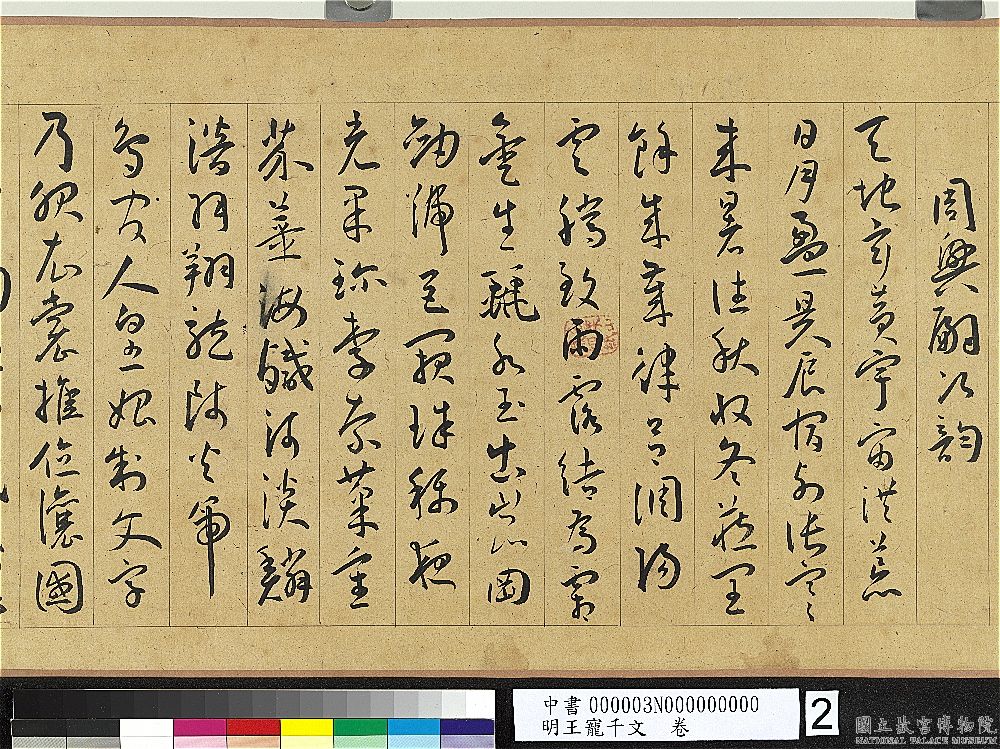 周興嗣次韵
天地玄黃宇宙洪荒
日月盈昃辰宿列張寒
來暑往秋收冬藏閏
餘成歲律呂調陽
雲騰致雨露結為霜
金生麗水玉出崑岡
劍號巨闕珠稱夜
光果珍李柰菜重
芥薑海鹹河淡鱗
潛羽翔龍師火帝
鳥官人皇始制文字
乃服衣裳推位讓國
中書 000003N000000000
明王寵千文 卷
2
國立故宮博物院
NATIONAL PALACE MUSEUM